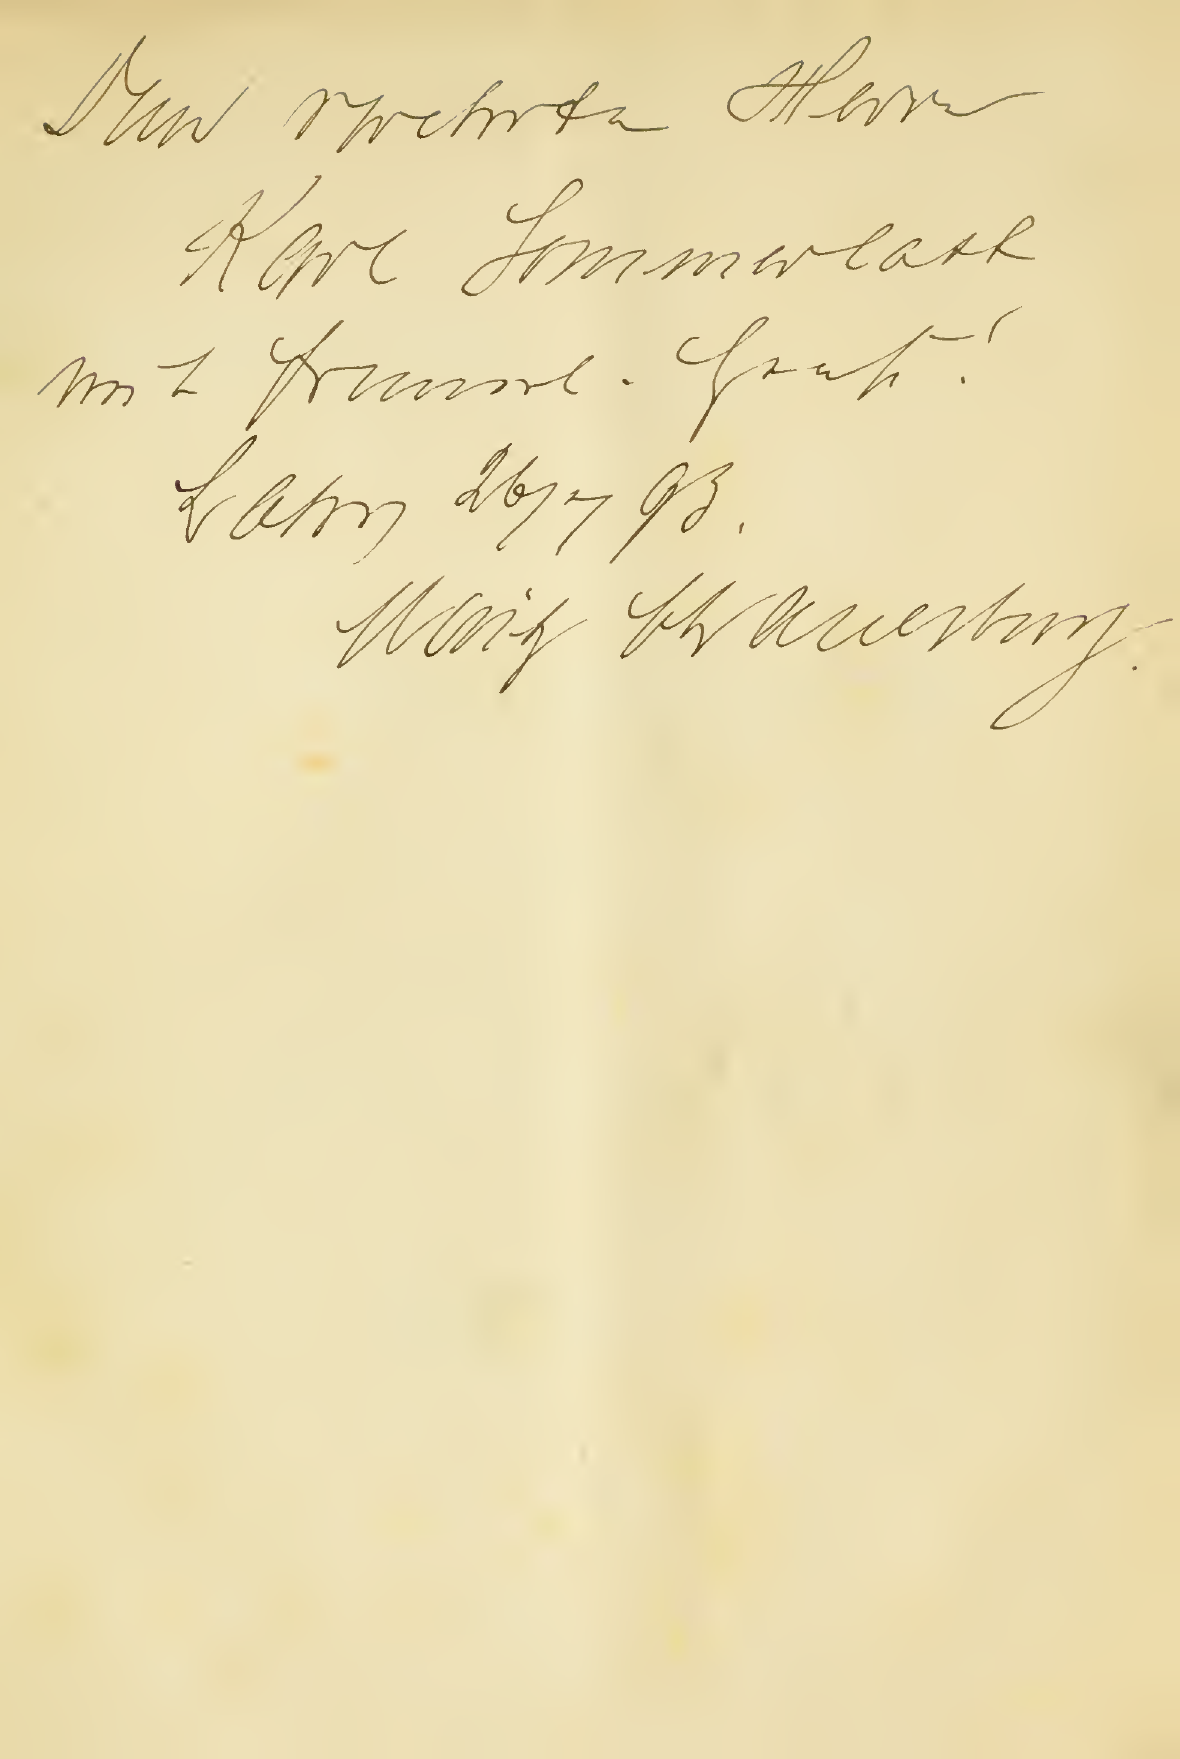 Dem verehrten Herrn
Karl Sommerlatt
mit freundl. Gruß!
Lahr 26/7 93.
Moritz Schauenburg.